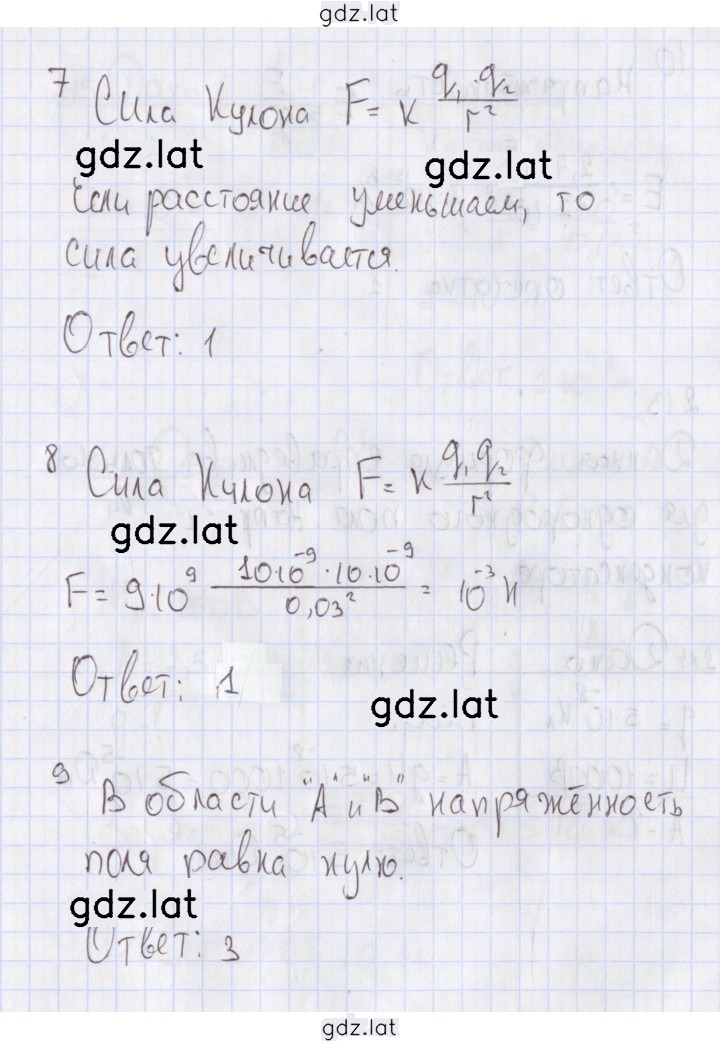 gdz.lat
7
Сила Кулона F = k q₁·q₂ / r²
gdz.lat gdz.lat
Если расстояние уменьшаем, то
сила увеличивается.
Ответ: 1
8
Сила Кулона F = k q₁ q₂ / r²
gdz.lat
F = 9·10⁹ 10·10⁻⁹·10·10⁻⁹ / 0,03² = 10⁻³ Н
Ответ: 1
gdz.lat
9
В области "А" и "В" напряжённость
поля равна нулю.
gdz.lat
Ответ: 3
gdz.lat